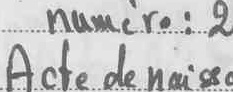 numéro: 2
Acte de naissa